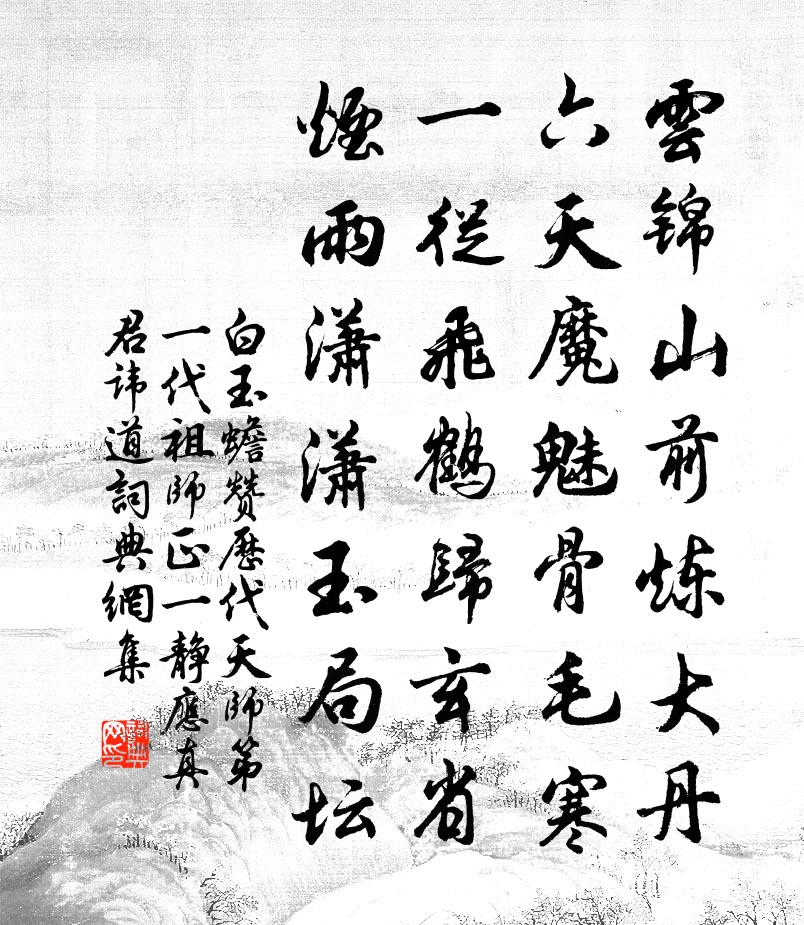 雲锦山前炼大丹
六天魔魅骨毛寒
一從飛鹤歸玄省
煙雨潇潇玉局坛
白玉蟾赞歷代天师第
一代祖师正一静應真
君讳道詞典網集